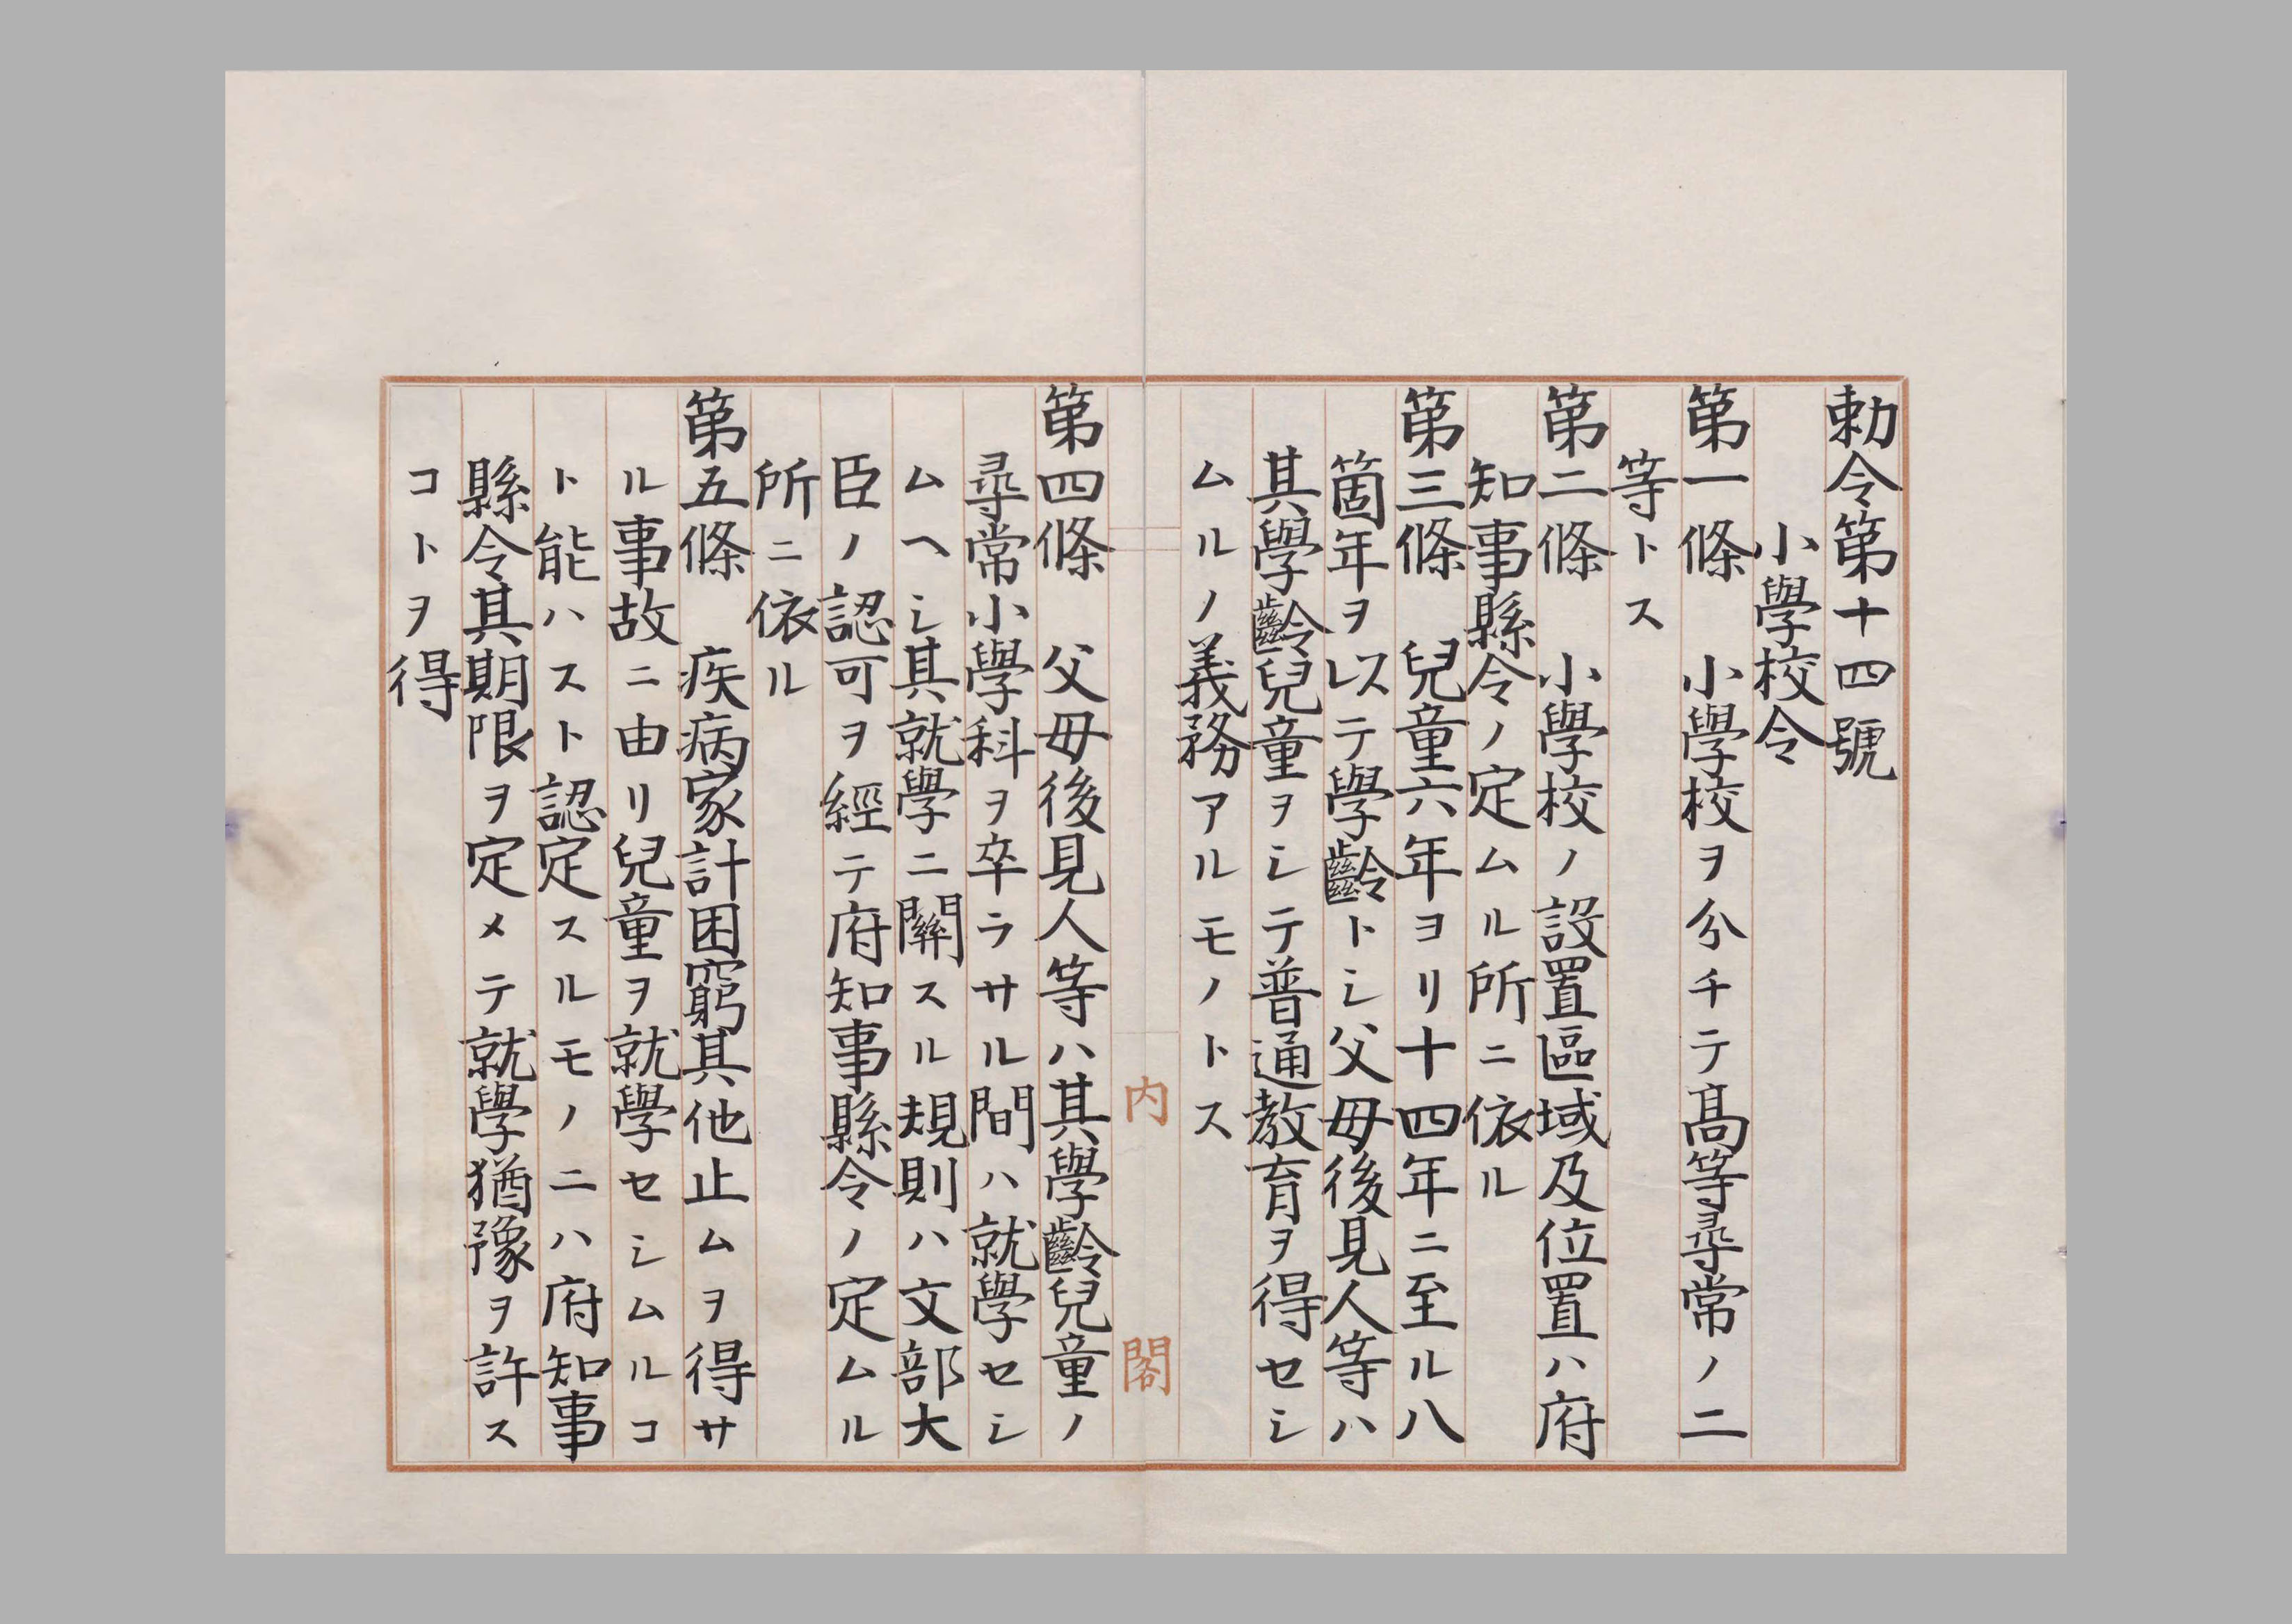 勅令第十四號
小學校令
第一條　小學校ヲ分チテ高等尋常ノ二
等トス
第二條　小學校ノ設置區域及位置ハ府
知事縣令ノ定ムル所ニ依ル
第三條　兒童六年ヨリ十四年ニ至ル八
箇年ヲ以テ學齡トシ父母後見人等ハ
其學齡兒童ヲシテ普通教育ヲ得セシ
ムルノ義務アルモノトス
内閣
第四條　父母後見人等ハ其學齡兒童ノ
尋常小學科ヲ卒ラサル間ハ就學セシ
ムヘシ其就學ニ關スル規則ハ文部大
臣ノ認可ヲ經テ府知事縣令ノ定ムル
所ニ依ル
第五條　疾病家計困窮其他止ムヲ得サ
ル事故ニ由リ兒童ヲ就學セシムルコ
ト能ハスト認定スルモノニハ府知事
縣令其期限ヲ定メテ就學猶豫ヲ許ス
コトヲ得